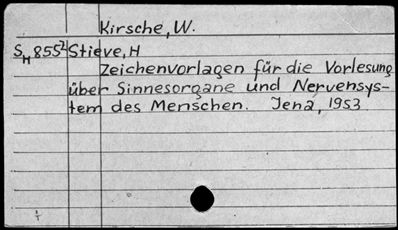 Kirsche, W.
SH 855² Stieve, H
Zeichenvorlagen für die Vorlesung
über Sinnesorgane und Nervensys-
tem des Menschen. Jena, 1953